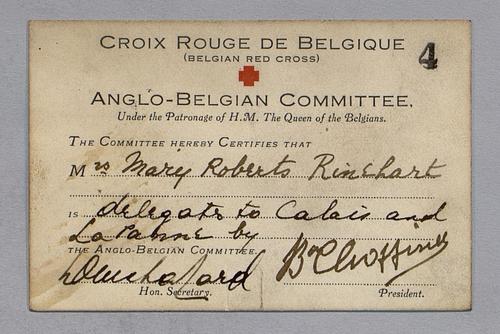 CROIX ROUGE DE BELGIQUE
4
(BELGIAN RED CROSS)
ANGLO-BELGIAN COMMITTEE.
Under the Patronage of H.M. The Queen of the Belgians.
THE COMMITTEE HEREBY CERTIFIES THAT
Mrs Mary Roberts Rinehart
IS delegate to Calais and
La Panne by
THE ANGLO-BELGIAN COMMITTEE
Hon. Secretary.
President.